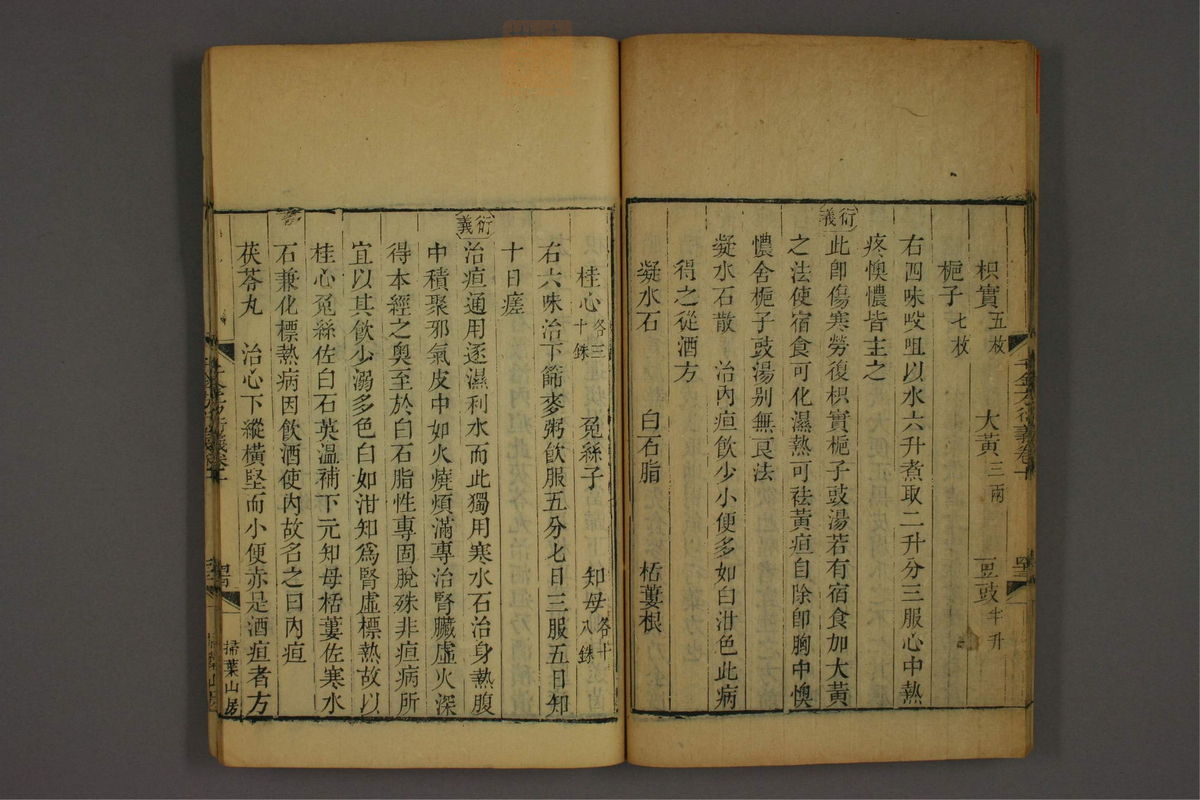 枳實五枚 大黃三兩 豆豉半升
梔子七枚
右四味㕮咀以水六升煮取二升分三服心中熱
疼懊憹皆主之
衍義
此卽傷寒勞復枳實梔子豉湯若有宿食加大黃
之法使宿食可化濕熱可祛黃疸自除卽胸中懊
憹舍梔子豉湯別無良法
凝水石散 治內疸飲少小便多如白泔色此病
得之從酒方
凝水石 白石脂 栝蔞根
桂心各三十銖 兔絲子 知母各十八銖
右六味治下篩麥粥飮服五分七日三服五日知
十日瘥
衍義
治疸通用逐濕利水而此獨用寒水石治身熱腹
中積聚邪氣皮中如火燒煩滿專治腎臟虛火深
得本經之奧至於白石脂性專固脫殊非疸病所
宜以其飮少溺多色白如泔知爲腎虛標熱故以
桂心兔絲佐白石英溫補下元知母栝蔞佐寒水
石兼化標熱病因飮酒使內故名之曰內疸
茯苓丸 治心下縱橫堅而小便赤是酒疸者方
掃葉山房